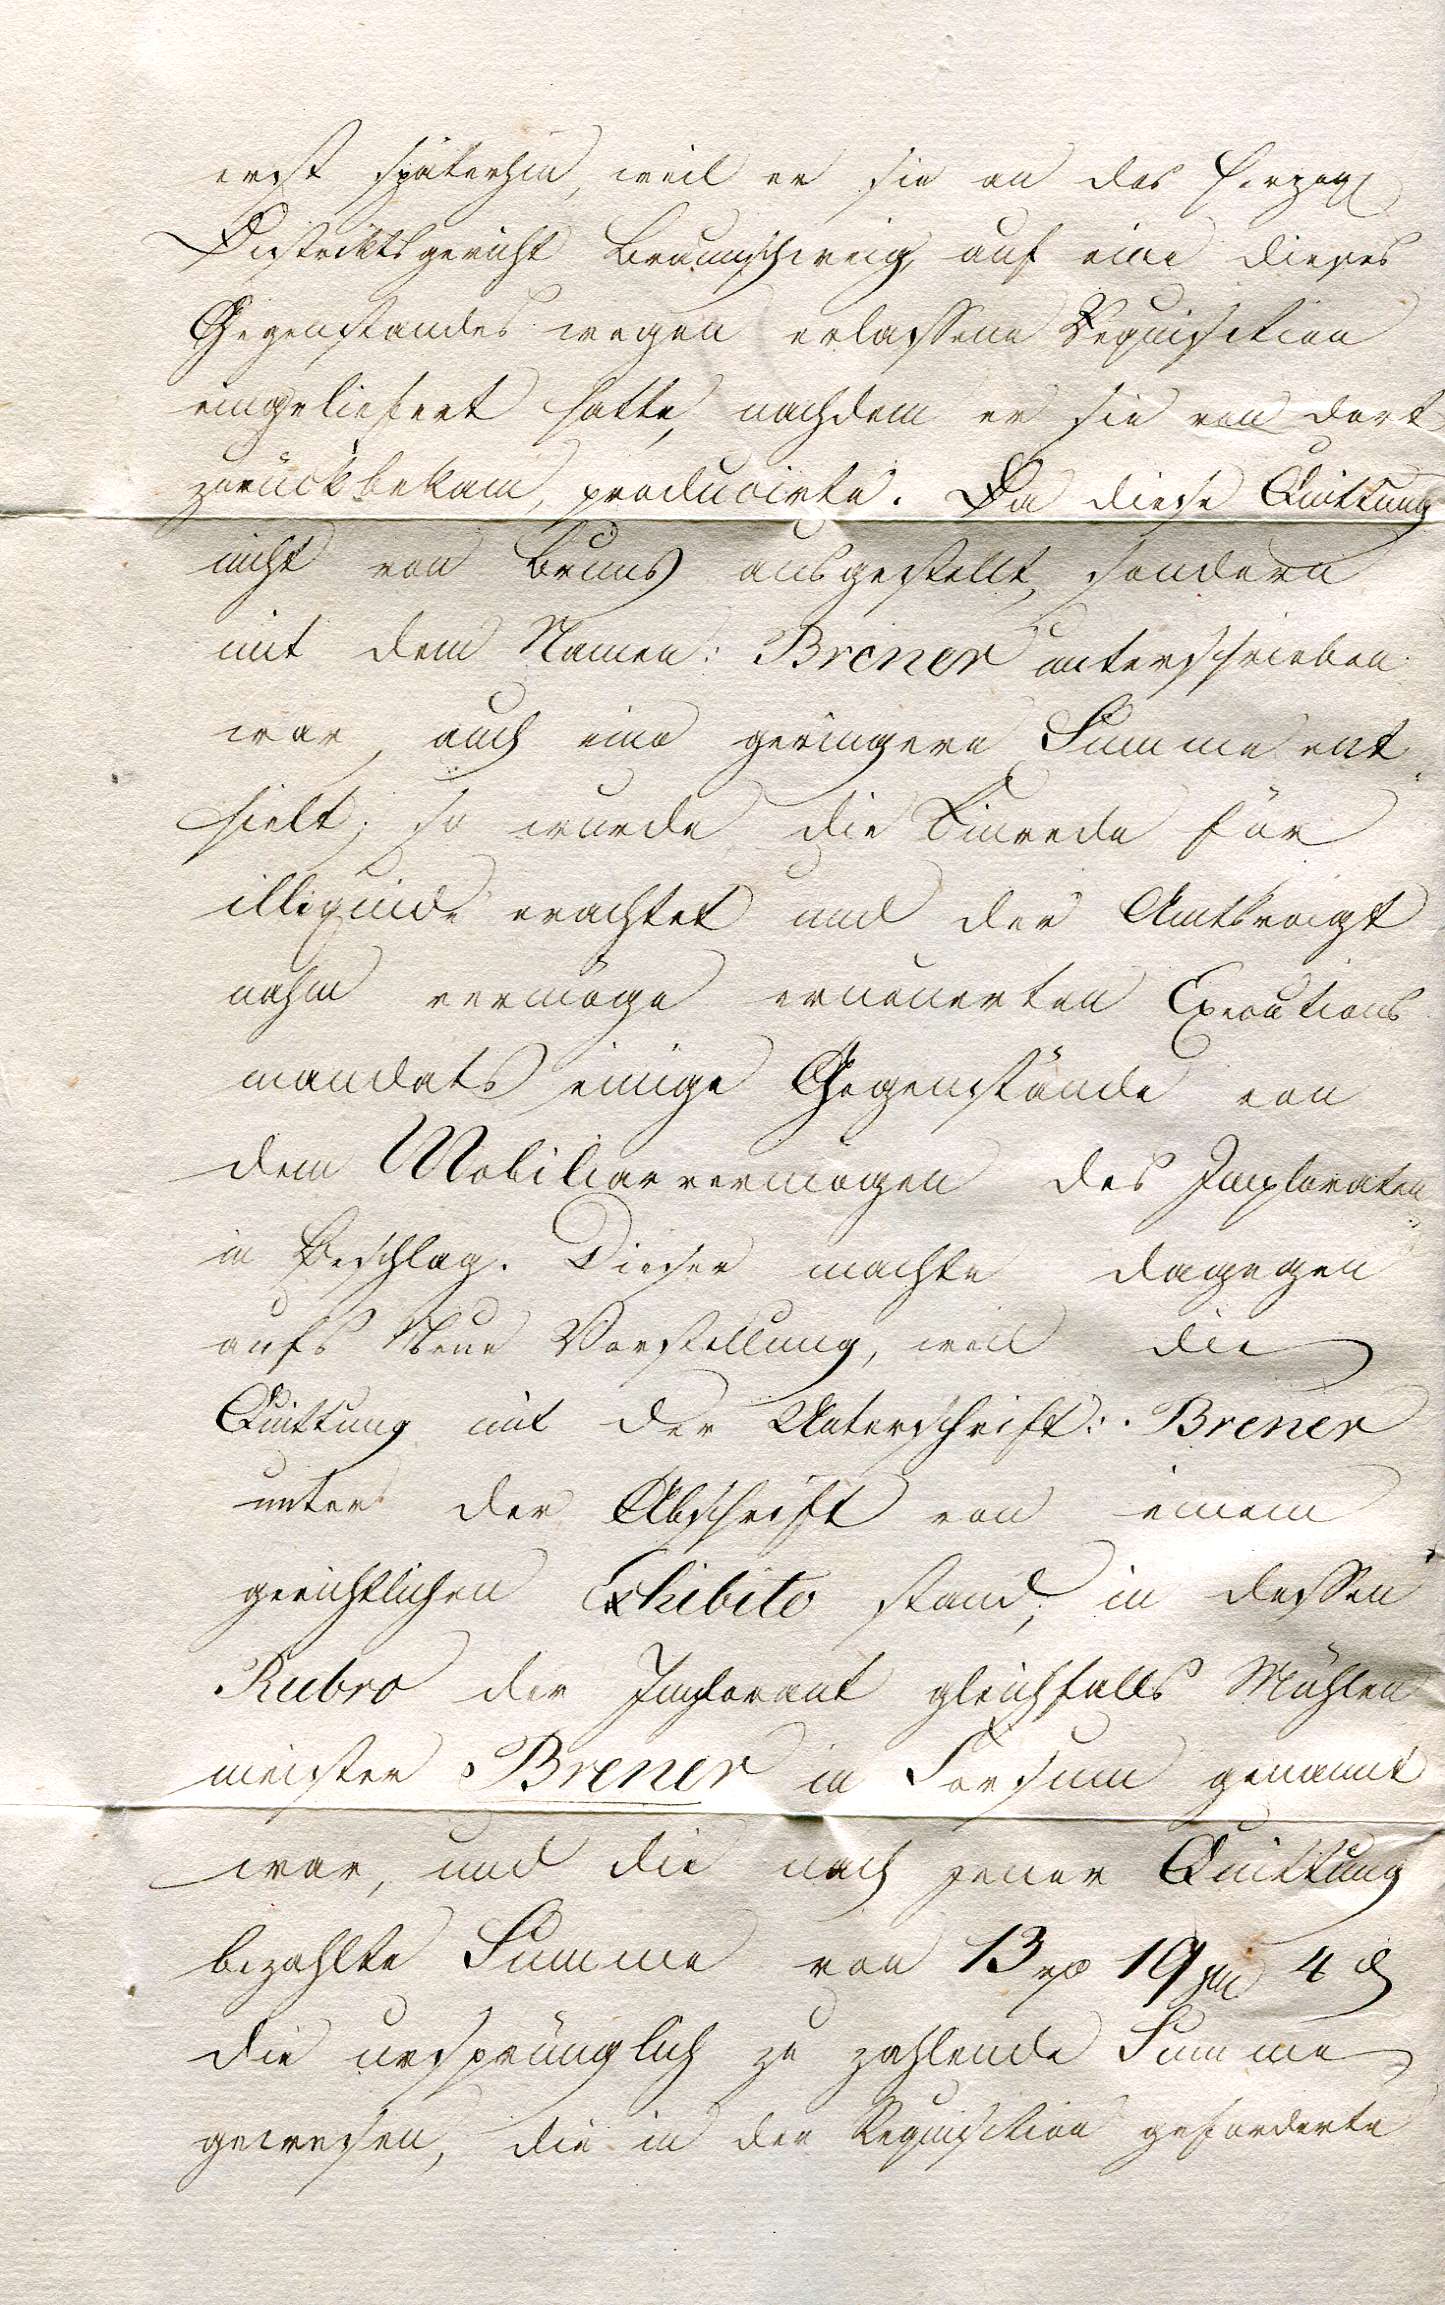 erst späterhin, weil er sie an das Herzogl.
Districtsgericht Braunschweig auf eine dieses
Gegenstandes wegen erlassene Requisition
eingeliefert hatte, nachdem er sie von dort
zurückbekam, producirte. Da diese Quittung
nicht von Bruns ausgestellt, sondern
mit dem Namen: Brener unterschrieben
war, auch eine geringere Summe ent-
hielt; so wurde die Einrede für
illiquide erachtet und der Amtsvoigt
nahm vermöge erneuerten Executions
mandats einige Gegenstände von
dem Mobiliarvermögen des Imploraten
in Beschlag. Dieser machte dagegen
aufs Neue Vorstellung, weil die
Quittung mit der Unterschrift: Brener
unter der Abschrift von einem
gerichtlichen Exhibito stand, in dessen
Rubro der Implorant gleichfalls Mühlen
meister Brener in genannt
war, und die nach jener Quittung
bezahlte Summe von 13 rp 19 gr 4 d
die ursprünglich zu zahlende Summe
gewesen, die in der Requisition geforderte